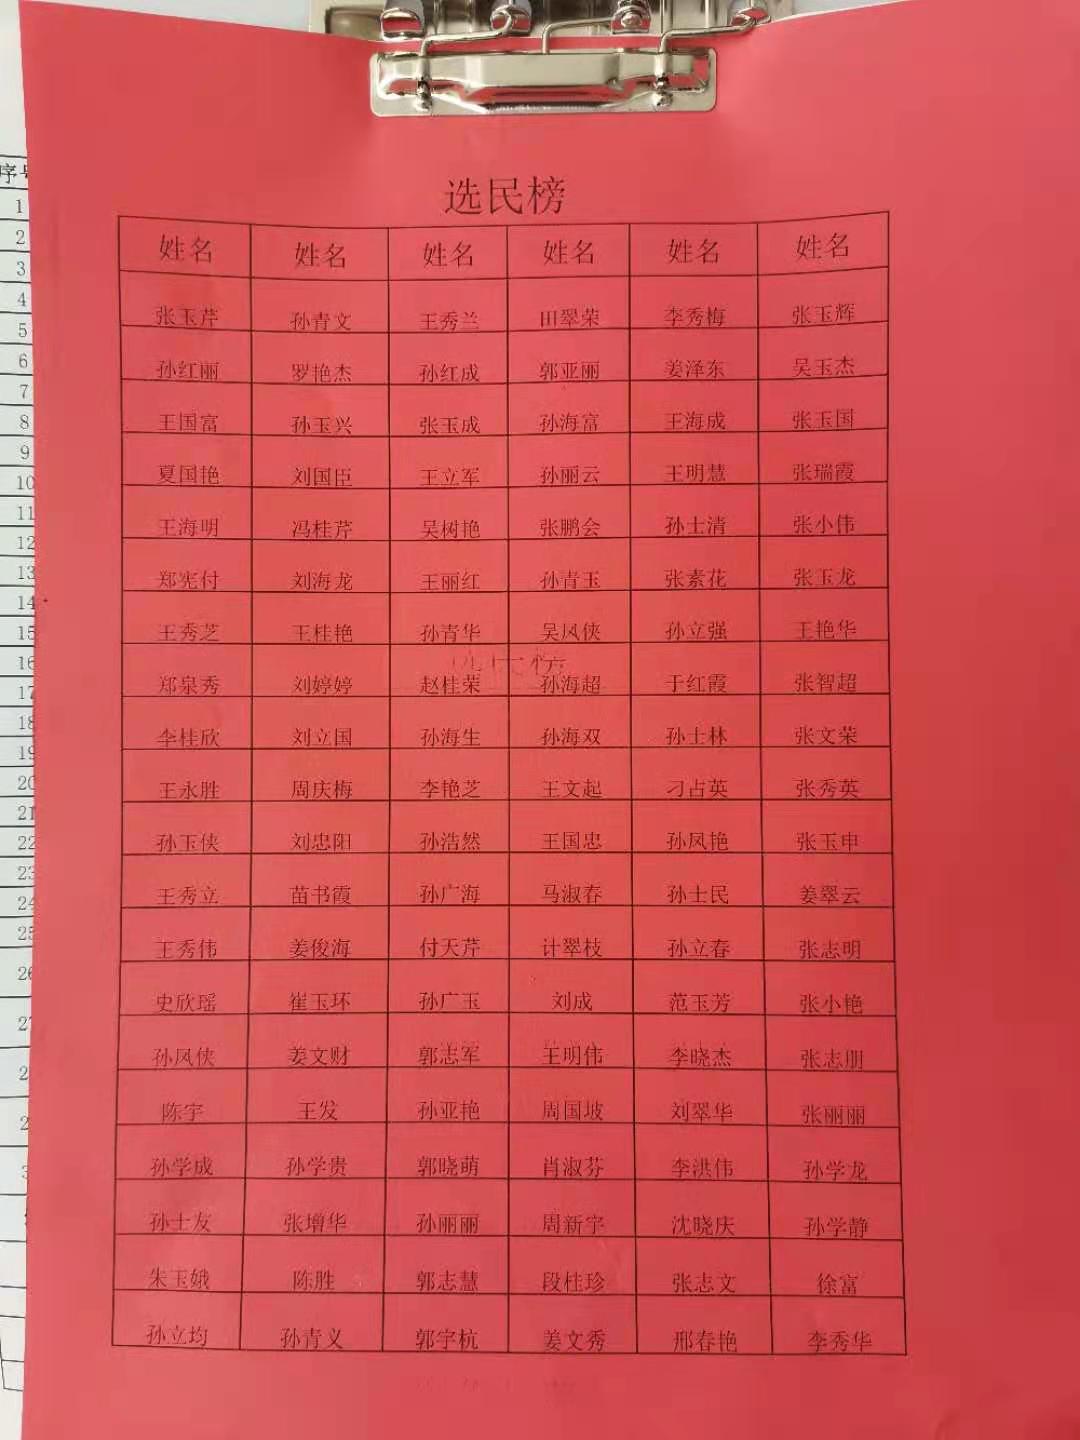 选民榜
姓名 姓名 姓名 姓名 姓名 姓名
张玉芹 孙青文 王秀兰 田翠荣 李秀梅 张玉辉
孙红丽 罗艳杰 孙红成 郭亚丽 姜泽东 吴玉杰
王国富 孙玉兴 张玉成 孙海富 王海成 张玉国
夏国艳 刘国臣 王立军 孙丽云 王明慧 张瑞霞
王海明 冯桂芹 吴树艳 张鹏会 孙士清 张小伟
郑宪付 刘海龙 王丽红 孙青玉 张素花 张玉龙
王秀芝 王桂艳 孙青华 吴凤侠 孙立强 王艳华
郑泉秀 刘婷婷 赵桂荣 孙海超 于红霞 张智超
李桂欣 刘立国 孙海生 孙海双 孙士林 张文荣
王永胜 周庆梅 李艳芝 王文起 刁占英 张秀英
孙玉侠 刘忠阳 孙浩然 王国忠 孙凤艳 张玉申
王秀立 苗书霞 孙广海 马淑春 孙士民 姜翠云
王秀伟 姜俊海 付天芹 计翠枝 孙立春 张志明
史欣瑶 崔玉环 孙广玉 刘成 范玉芳 张小艳
孙凤侠 姜文财 郭志军 王明伟 李晓杰 张志朋
陈宇 王发 孙亚艳 周国坡 刘翠华 张丽丽
孙学成 孙学贵 郭晓萌 肖淑芬 李洪伟 孙学龙
孙士友 张增华 孙丽丽 周新宇 沈晓庆 孙学静
朱玉娥 陈胜 郭志慧 段桂珍 张志文 徐富
孙立均 孙青义 郭宇杭 姜文秀 邢春艳 李秀华
序号
1
2
3
4
5
6
7
8
9
10
11
12
13
14
15
16
17
18
19
20
21
22
23
24
25
26